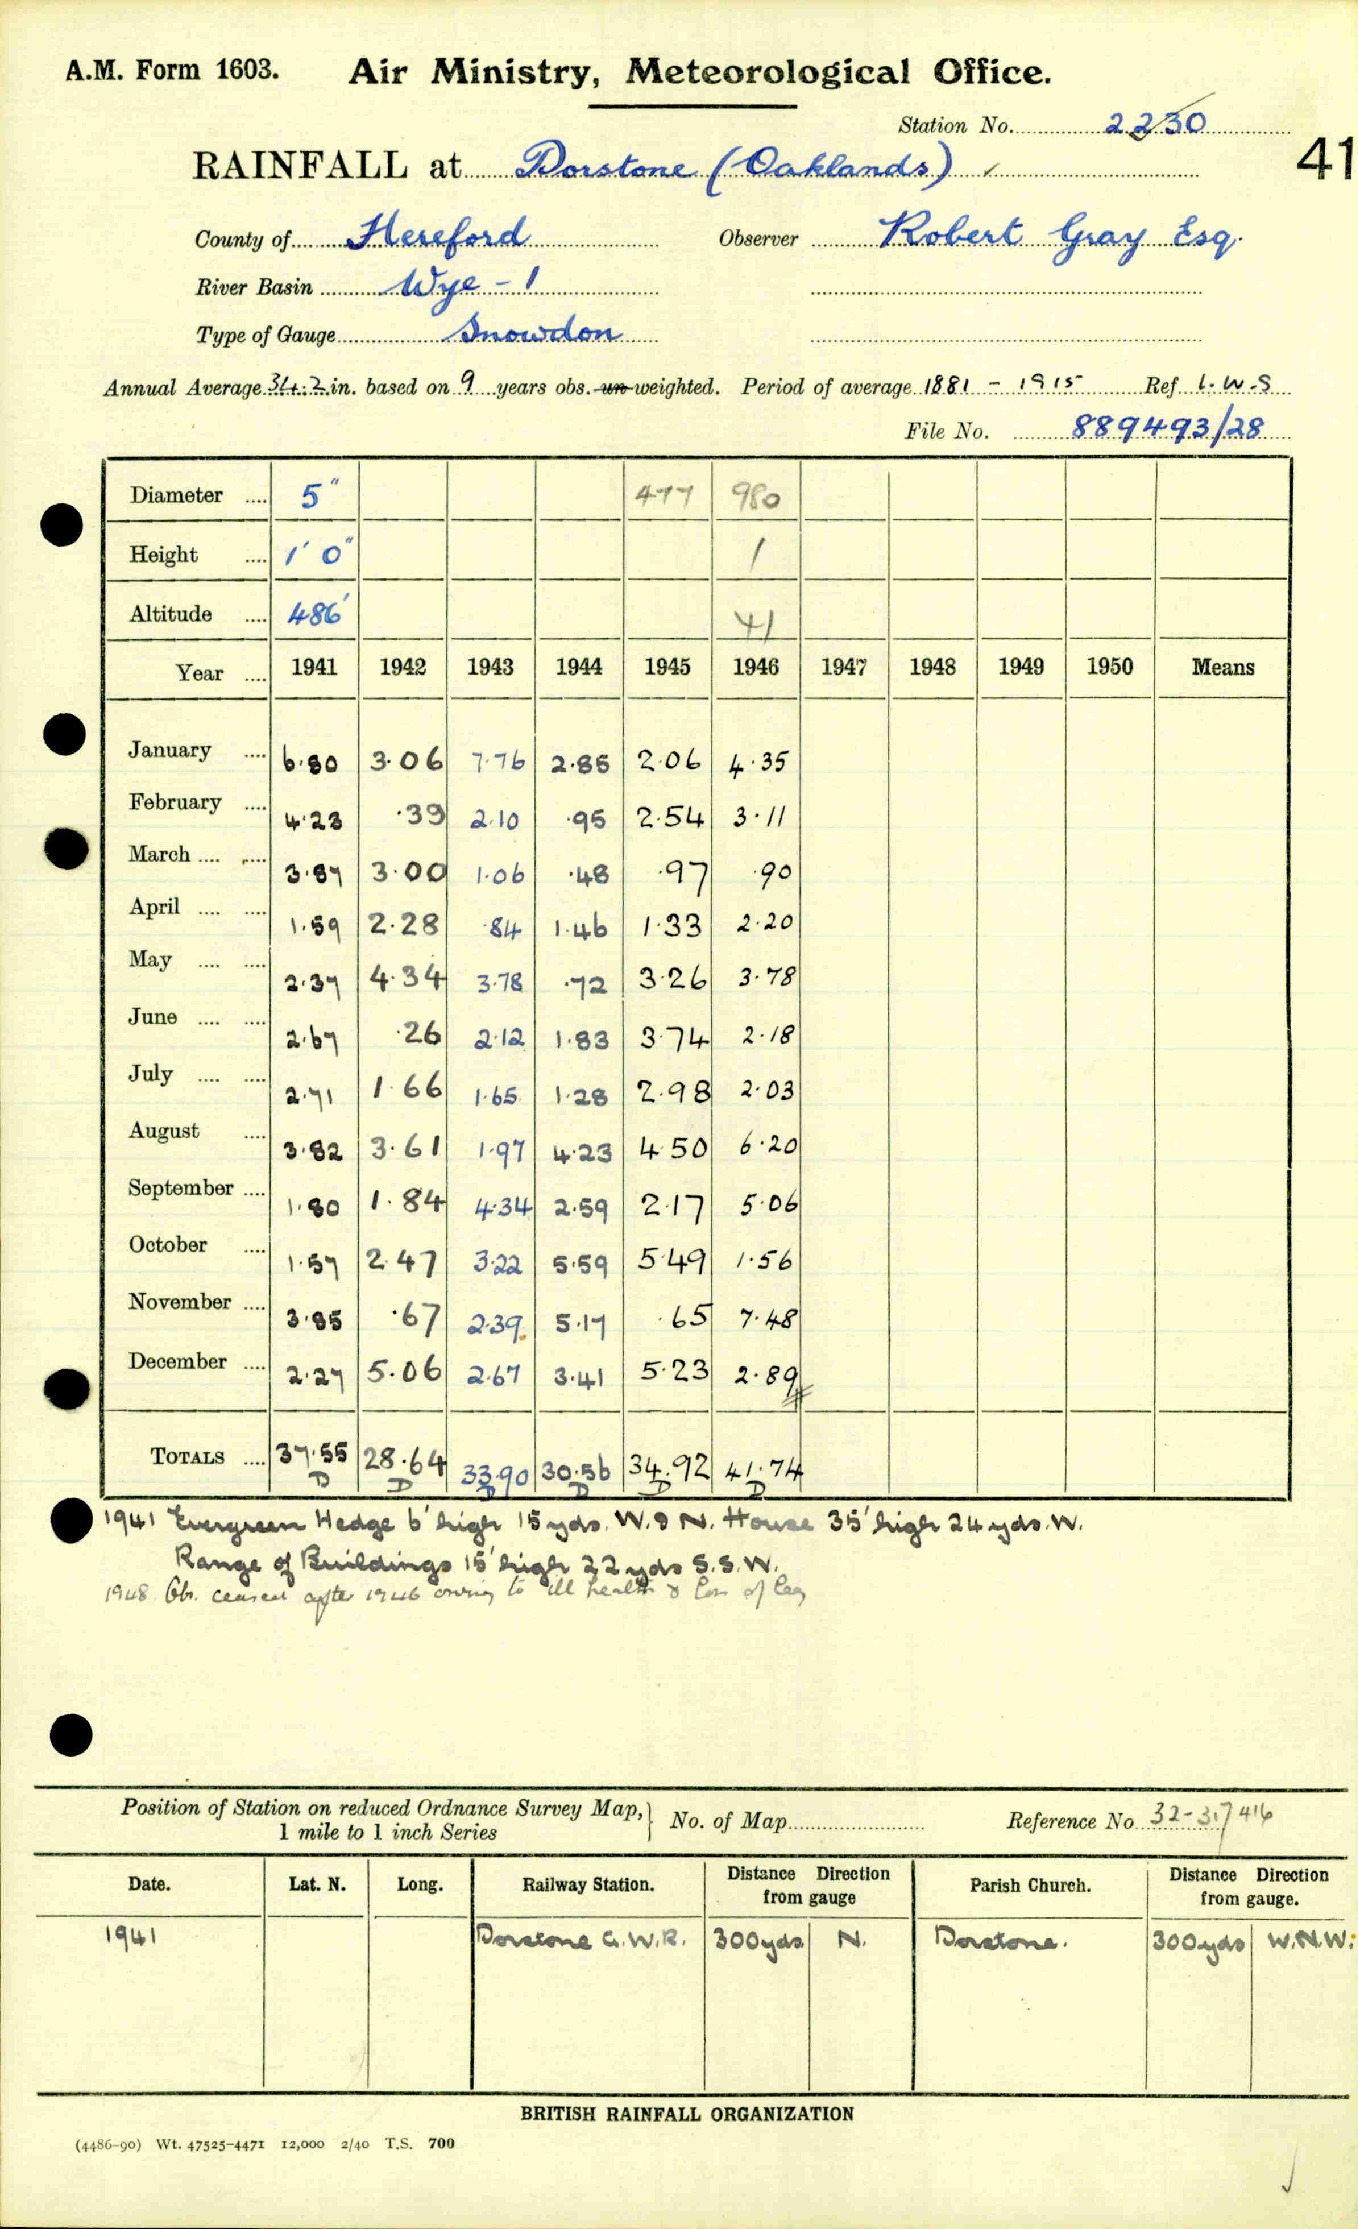 A.M. Form 1603. Air Ministry, Meteorological Office.
Station No. 2230
41
RAINFALL at Dorstone (Oaklands) ✓
County of Hereford Observer Robert Gray Esq.
River Basin Wye - 1
Type of Gauge Snowdon
Annual Average 34.2 in. based on 9 years obs. un weighted. Period of average 1881 - 1915 Ref. L.W.S
File No. 889493/28
Diameter .... 5" 477 980
Height .... 1' 0" 1
Altitude .... 486' 41
Year .... 1941 1942 1943 1944 1945 1946 1947 1948 1949 1950 Means
January .... 6.80 3.06 7.76 2.85 2.06 4.35
February .... 4.23 .39 2.10 .95 2.54 3.11
March .... .... 3.87 3.00 1.06 .48 .97 .90
April .... .... 1.59 2.28 .84 1.46 1.33 2.20
May .... .... 2.37 4.34 3.78 .72 3.26 3.78
June .... .... 2.67 .26 2.12 1.83 3.74 2.18
July .... .... 2.71 1.66 1.65 1.28 2.98 2.03
August .... 3.82 3.61 1.97 4.23 4.50 6.20
September .... 1.80 1.84 4.34 2.59 2.17 5.06
October .... 1.57 2.47 3.22 5.59 5.49 1.56
November .... 3.85 .67 2.39 5.17 .65 7.48
December .... 2.27 5.06 2.67 3.41 5.23 2.89
TOTALS .... 37.55 28.64 33.90 30.56 34.92 41.74
D D D D D D
1941 Evergreen Hedge 6' high 15 yds. W. & N. House 35' high 24 yds. W.
Range of Buildings 15' high 22 yds S.S.W.
1948 Obs. ceased after 1946 owing to ill health & loss of leg
Position of Station on reduced Ordnance Survey Map, } No. of Map Reference No. 32-317416
1 mile to 1 inch Series
Date. Lat. N. Long. Railway Station. Distance Direction from gauge Parish Church. Distance Direction from gauge.
1941 Dorstone G.W.R. 300 yds N. Dorstone. 300 yds W.N.W.
BRITISH RAINFALL ORGANIZATION
(4486-90) Wt. 47525-4471 12,000 2/40 T.S. 700